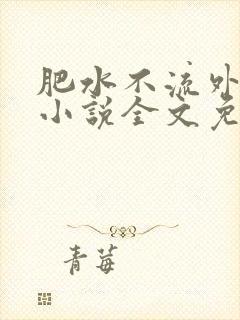 肥水不流外
小说全文免
青莓